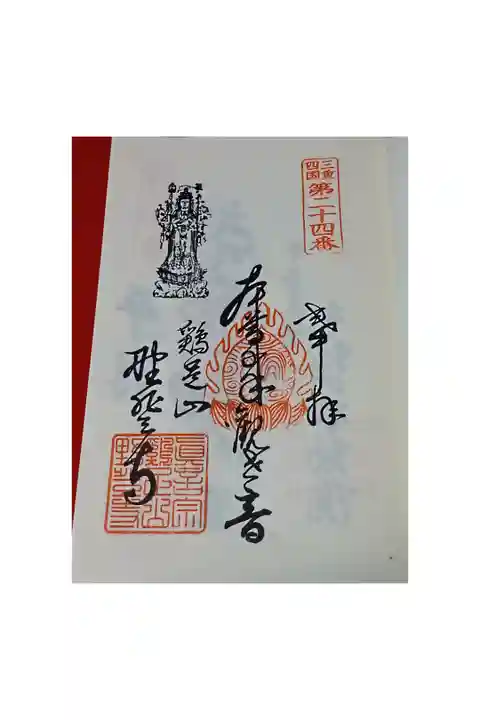 三重四国
第二十四番
奉拝
本尊千手観世音
鶏足山
野登寺